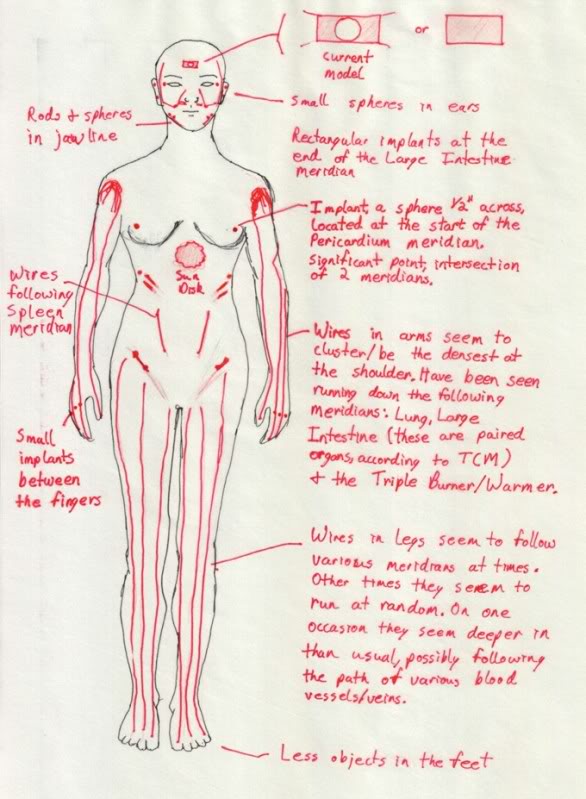 or
current
model
Small spheres in ears
Rods & spheres
in jawline
Rectangular implants at the
end of the Large Intestine
meridian
Implant, a sphere 1/2" across,
located at the start of the
Pericardium meridian.
Significant point, intersection
of 2 meridians.
Sun
Disk
Wires
following
Spleen
meridian
Wires in arms seem to
cluster/be the densest at
the shoulder. Have been seen
running down the following
meridians: Lung, Large
Intestine (these are paired
organs, according to TCM)
& the Triple Burner/Warmer.
Small
implants
between
the fingers
Wires in Legs seem to follow
various meridians at times.
Other times they seem to
run at random. On one
occasion they seem deeper in
than usual, possibly following
the path of various blood
vessels/veins.
Less objects in the feet